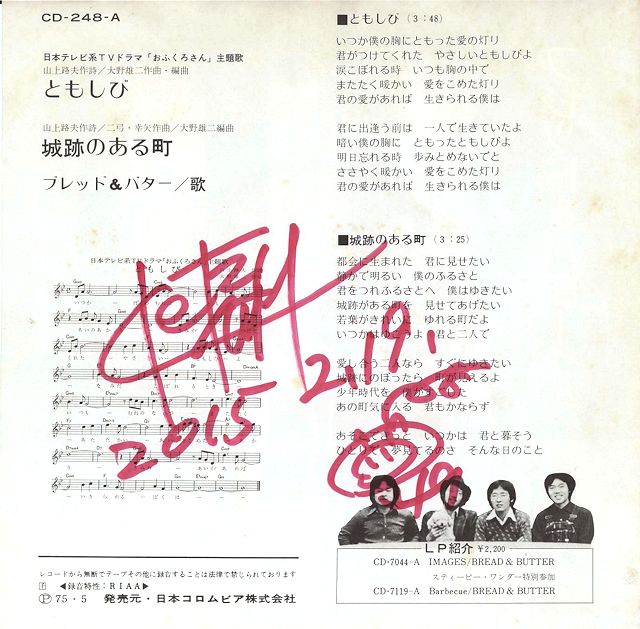 CD-248-A
日本テレビ系TVドラマ「おふくろさん」主題歌
山上路夫作詩／大野雄二作曲・編曲
ともしび
山上路夫作詩／二弓・幸矢作曲／大野雄二編曲
城跡のある町
ブレッド&バター／歌
■ともしび (3:48)
いつか僕の胸にともった愛の灯り
君がつけてくれた やさしいともしびよ
涙こぼれる時 いつも胸の中で
またたく暖かい 愛をこめた灯り
君の愛があれば 生きられる僕は
君に出逢う前は 一人で生きていたよ
暗い僕の胸に ともったともしびよ
明日忘れる時 歩みとめないでと
ささやく暖かい 愛をこめた灯り
君の愛があれば 生きられる僕は
■城跡のある町 (3:25)
都会に生まれた 君に見せたい
静かで明るい 僕のふるさと
君をつれふるさとへ 僕はゆきたい
城跡がある町を 見せてあげたい
若葉がきれいに ゆれる町だよ
いつかはゆこうよ 君と二人で
愛し合う二人なら すぐにゆきたい
城跡にのぼったら 町が見えるよ
少年時代を 僕がすごした
あの町気に入る 君もかならず
あそこできっと いつかは 君と暮そう
ひとりで 夢見てるのさ そんな日のこと
日本テレビ系TVドラマ「おふくろさん」主題歌
ともしび
2015
2.19!
LP紹介 ¥2,200
CD-7044-A IMAGES/BREAD & BUTTER
スティービー・ワンダー特別参加
CD-7119-A Barbecue/BREAD & BUTTER
レコードから無断でテープその他に録音することは法律で禁じられております
◀録音特性：RIAA▶
Ⓟ75・5 発売元・日本コロムビア株式会社